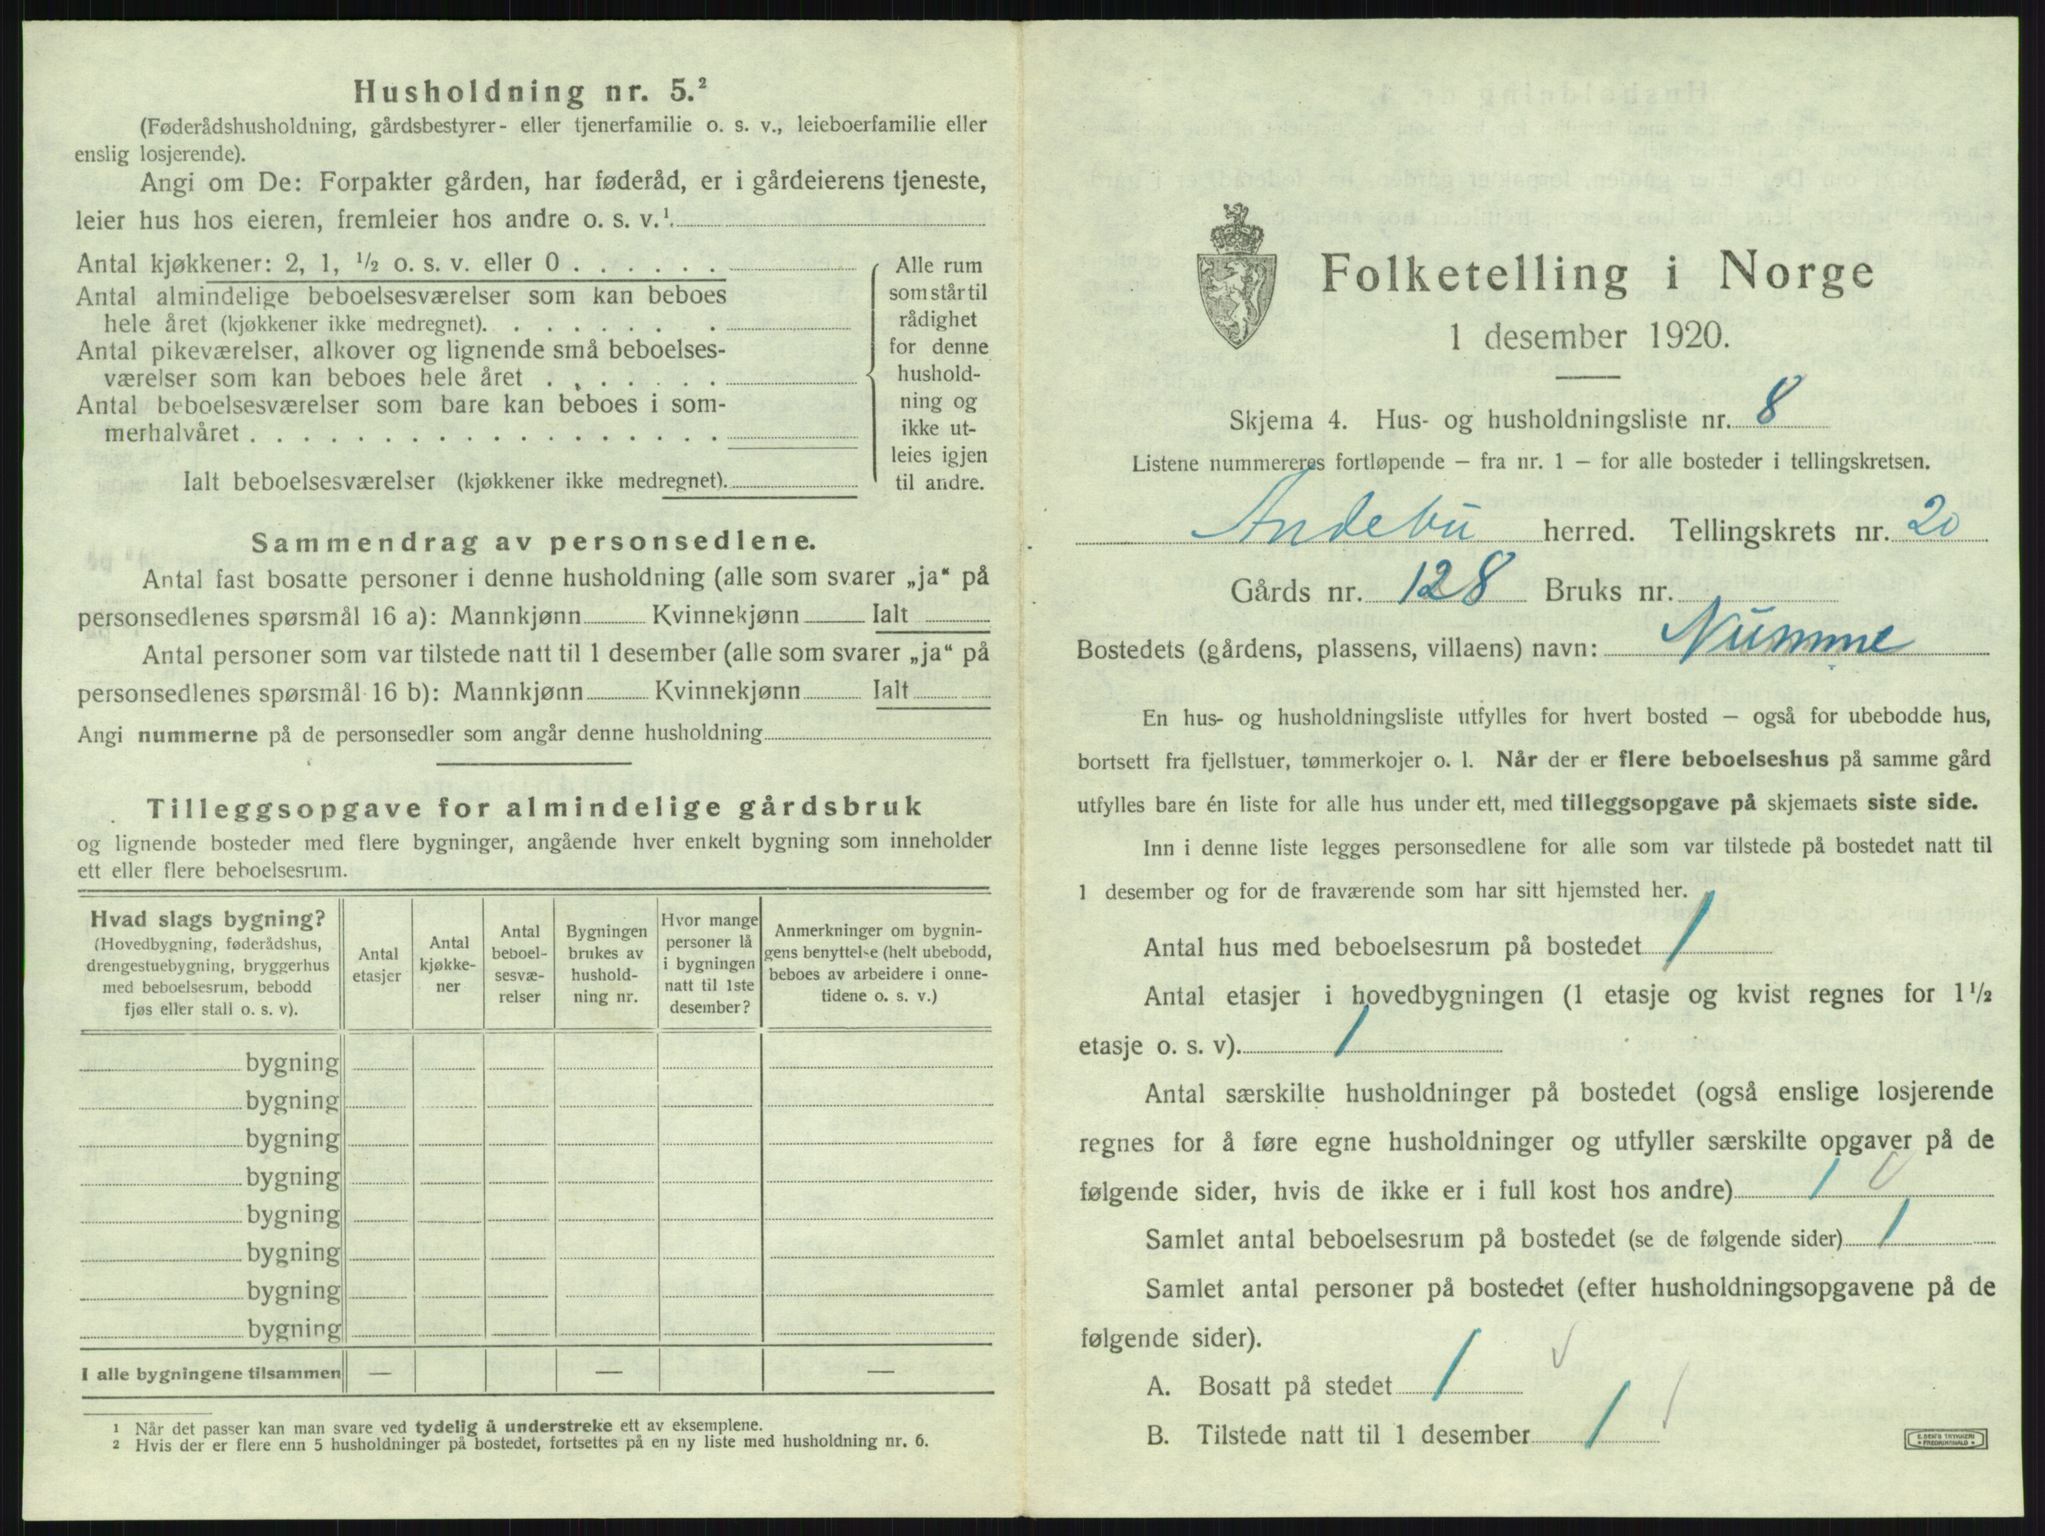 Husholdning nr. 5.²
(Føderådshusholdning, gårdsbestyrer- eller tjenerfamilie o. s. v., leieboerfamilie eller
enslig losjerende).
Angi om De: Forpakter gården, har føderåd, er i gårdeierens tjeneste,
leier hus hos eieren, fremleier hos andre o. s. v.¹
Antal kjøkkener: 2, 1, ½ o. s. v. eller 0 . . . . . .
Antal almindelige beboelsesværelser som kan beboes
hele året (kjøkkener ikke medregnet). . . . . . . .
Antal pikeværelser, alkover og lignende små beboelses-
værelser som kan beboes hele året . . . . . . .
Antal beboelsesværelser som bare kan beboes i som-
merhalvåret . . . . . . . . . . . . . . . . . .
Ialt beboelsesværelser (kjøkkener ikke medregnet).
Alle rum
som står til
rådighet
for denne
hushold-
ning og
ikke ut-
leies igjen
til andre.
Sammendrag av personsedlene.
Antal fast bosatte personer i denne husholdning (alle som svarer „ja“ på
personsedlenes spørsmål 16 a): Mannkjønn Kvinnekjønn Ialt
Antal personer som var tilstede natt til 1 desember (alle som svarer „ja“ på
personsedlenes spørsmål 16 b): Mannkjønn Kvinnekjønn Ialt
Angi nummerne på de personsedler som angår denne husholdning
Tilleggsopgave for almindelige gårdsbruk
og lignende bosteder med flere bygninger, angående hver enkelt bygning som inneholder
ett eller flere beboelsesrum.
Hvad slags bygning?
(Hovedbygning, føderådshus,
drengestuebygning, bryggerhus
med beboelsesrum, bebodd
fjøs eller stall o. s. v).
Antal
etasjer
Antal
kjøkke-
ner
Antal
beboel-
sesvæ-
relser
Bygningen
brukes av
hushold-
ning nr.
Hvor mange
personer lå
i bygningen
natt til 1ste
desember?
Anmerkninger om bygnin-
gens benyttelse (helt ubebodd,
beboes av arbeidere i onne-
tidene o. s. v.)
bygning
bygning
bygning
bygning
bygning
bygning
bygning
bygning
I alle bygningene tilsammen — — —
¹ Når det passer kan man svare ved tydelig å understreke ett av eksemplene.
² Hvis der er flere enn 5 husholdninger på bostedet, fortsettes på en ny liste med husholdning nr. 6.
Folketelling i Norge
1 desember 1920.
Skjema 4. Hus- og husholdningsliste nr. 8
Listene nummereres fortløpende – fra nr. 1 – for alle bosteder i tellingskretsen.
Andebu herred. Tellingskrets nr. 20
Gårds nr. 128 Bruks nr.
Bostedets (gårdens, plassens, villaens) navn: Numme
En hus- og husholdningsliste utfylles for hvert bosted – også for ubebodde hus,
bortsett fra fjellstuer, tømmerkojer o. l. Når der er flere beboelseshus på samme gård
utfylles bare én liste for alle hus under ett, med tilleggsopgave på skjemaets siste side.
Inn i denne liste legges personsedlene for alle som var tilstede på bostedet natt til
1 desember og for de fraværende som har sitt hjemsted her.
Antal hus med beboelsesrum på bostedet 1
Antal etasjer i hovedbygningen (1 etasje og kvist regnes for 1½
etasje o. s. v). 1
Antal særskilte husholdninger på bostedet (også enslige losjerende
regnes for å føre egne husholdninger og utfyller særskilte opgaver på de
følgende sider, hvis de ikke er i full kost hos andre) 1 √
Samlet antal beboelsesrum på bostedet (se de følgende sider) 1
Samlet antal personer på bostedet (efter husholdningsopgavene på de
følgende sider).
A. Bosatt på stedet 1 √
B. Tilstede natt til 1 desember 1 /